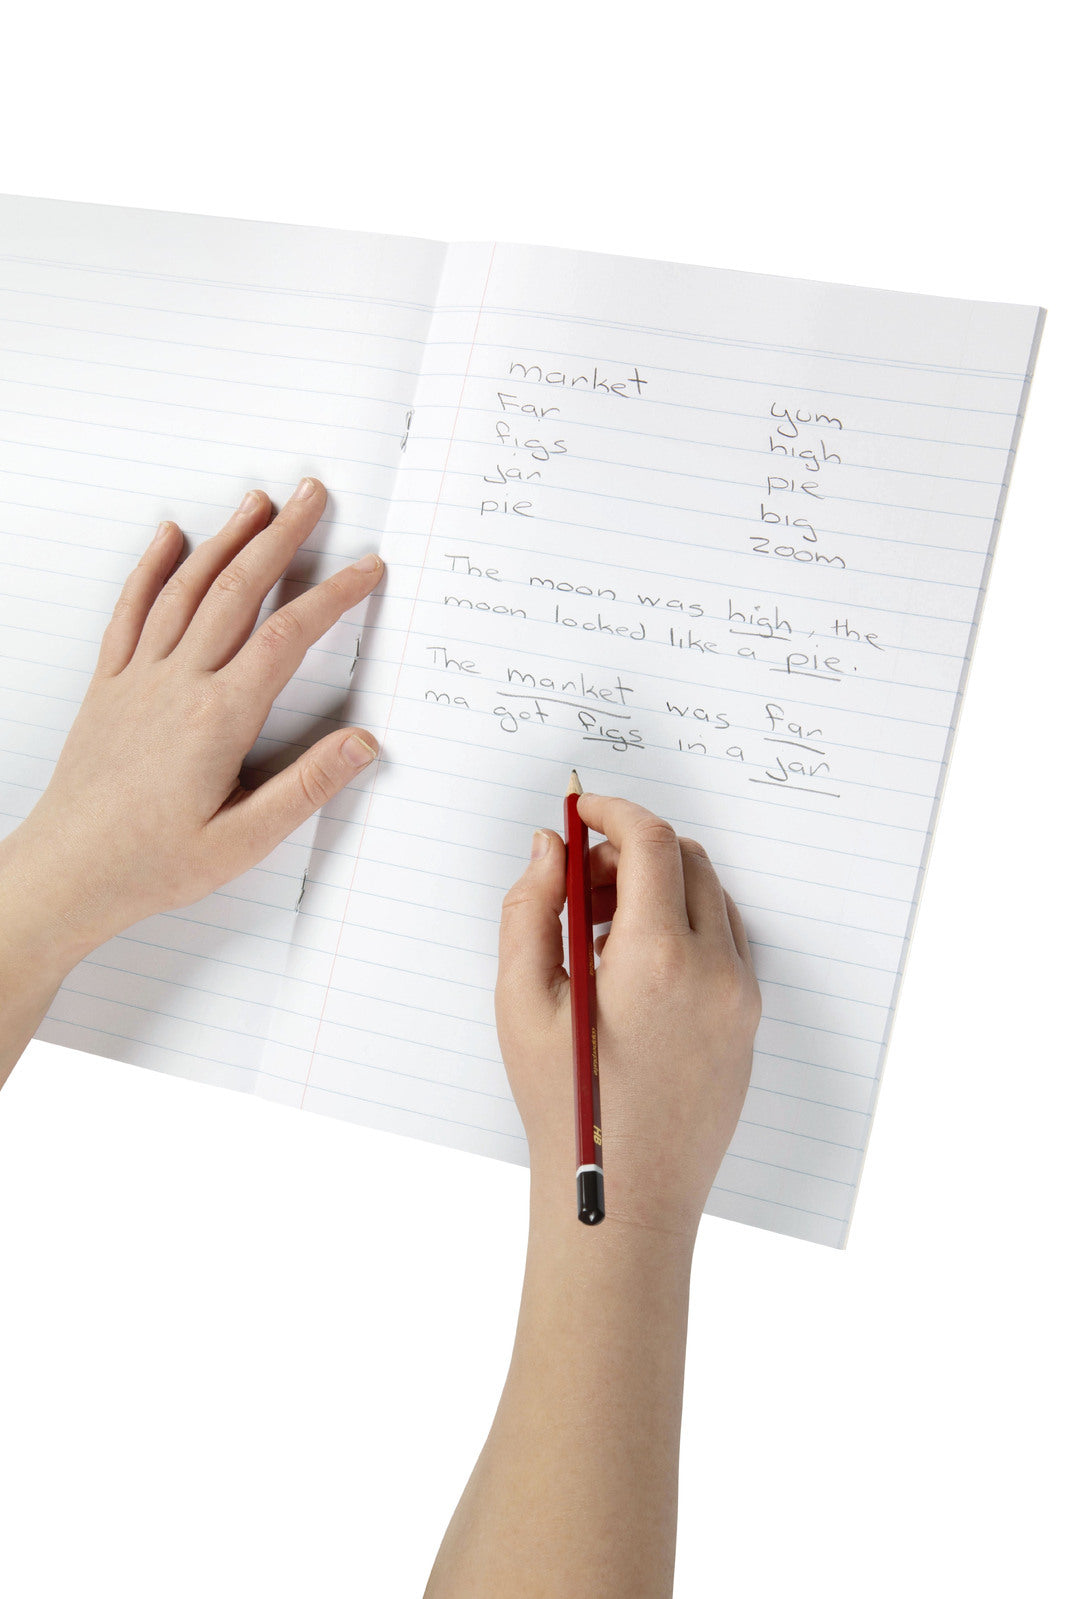 market
Far
figs
jar
pie
yum
high
pie
big
zoom
The moon was high, the
moon looked like a pie.
The market was far
ma got figs in a jar
HB